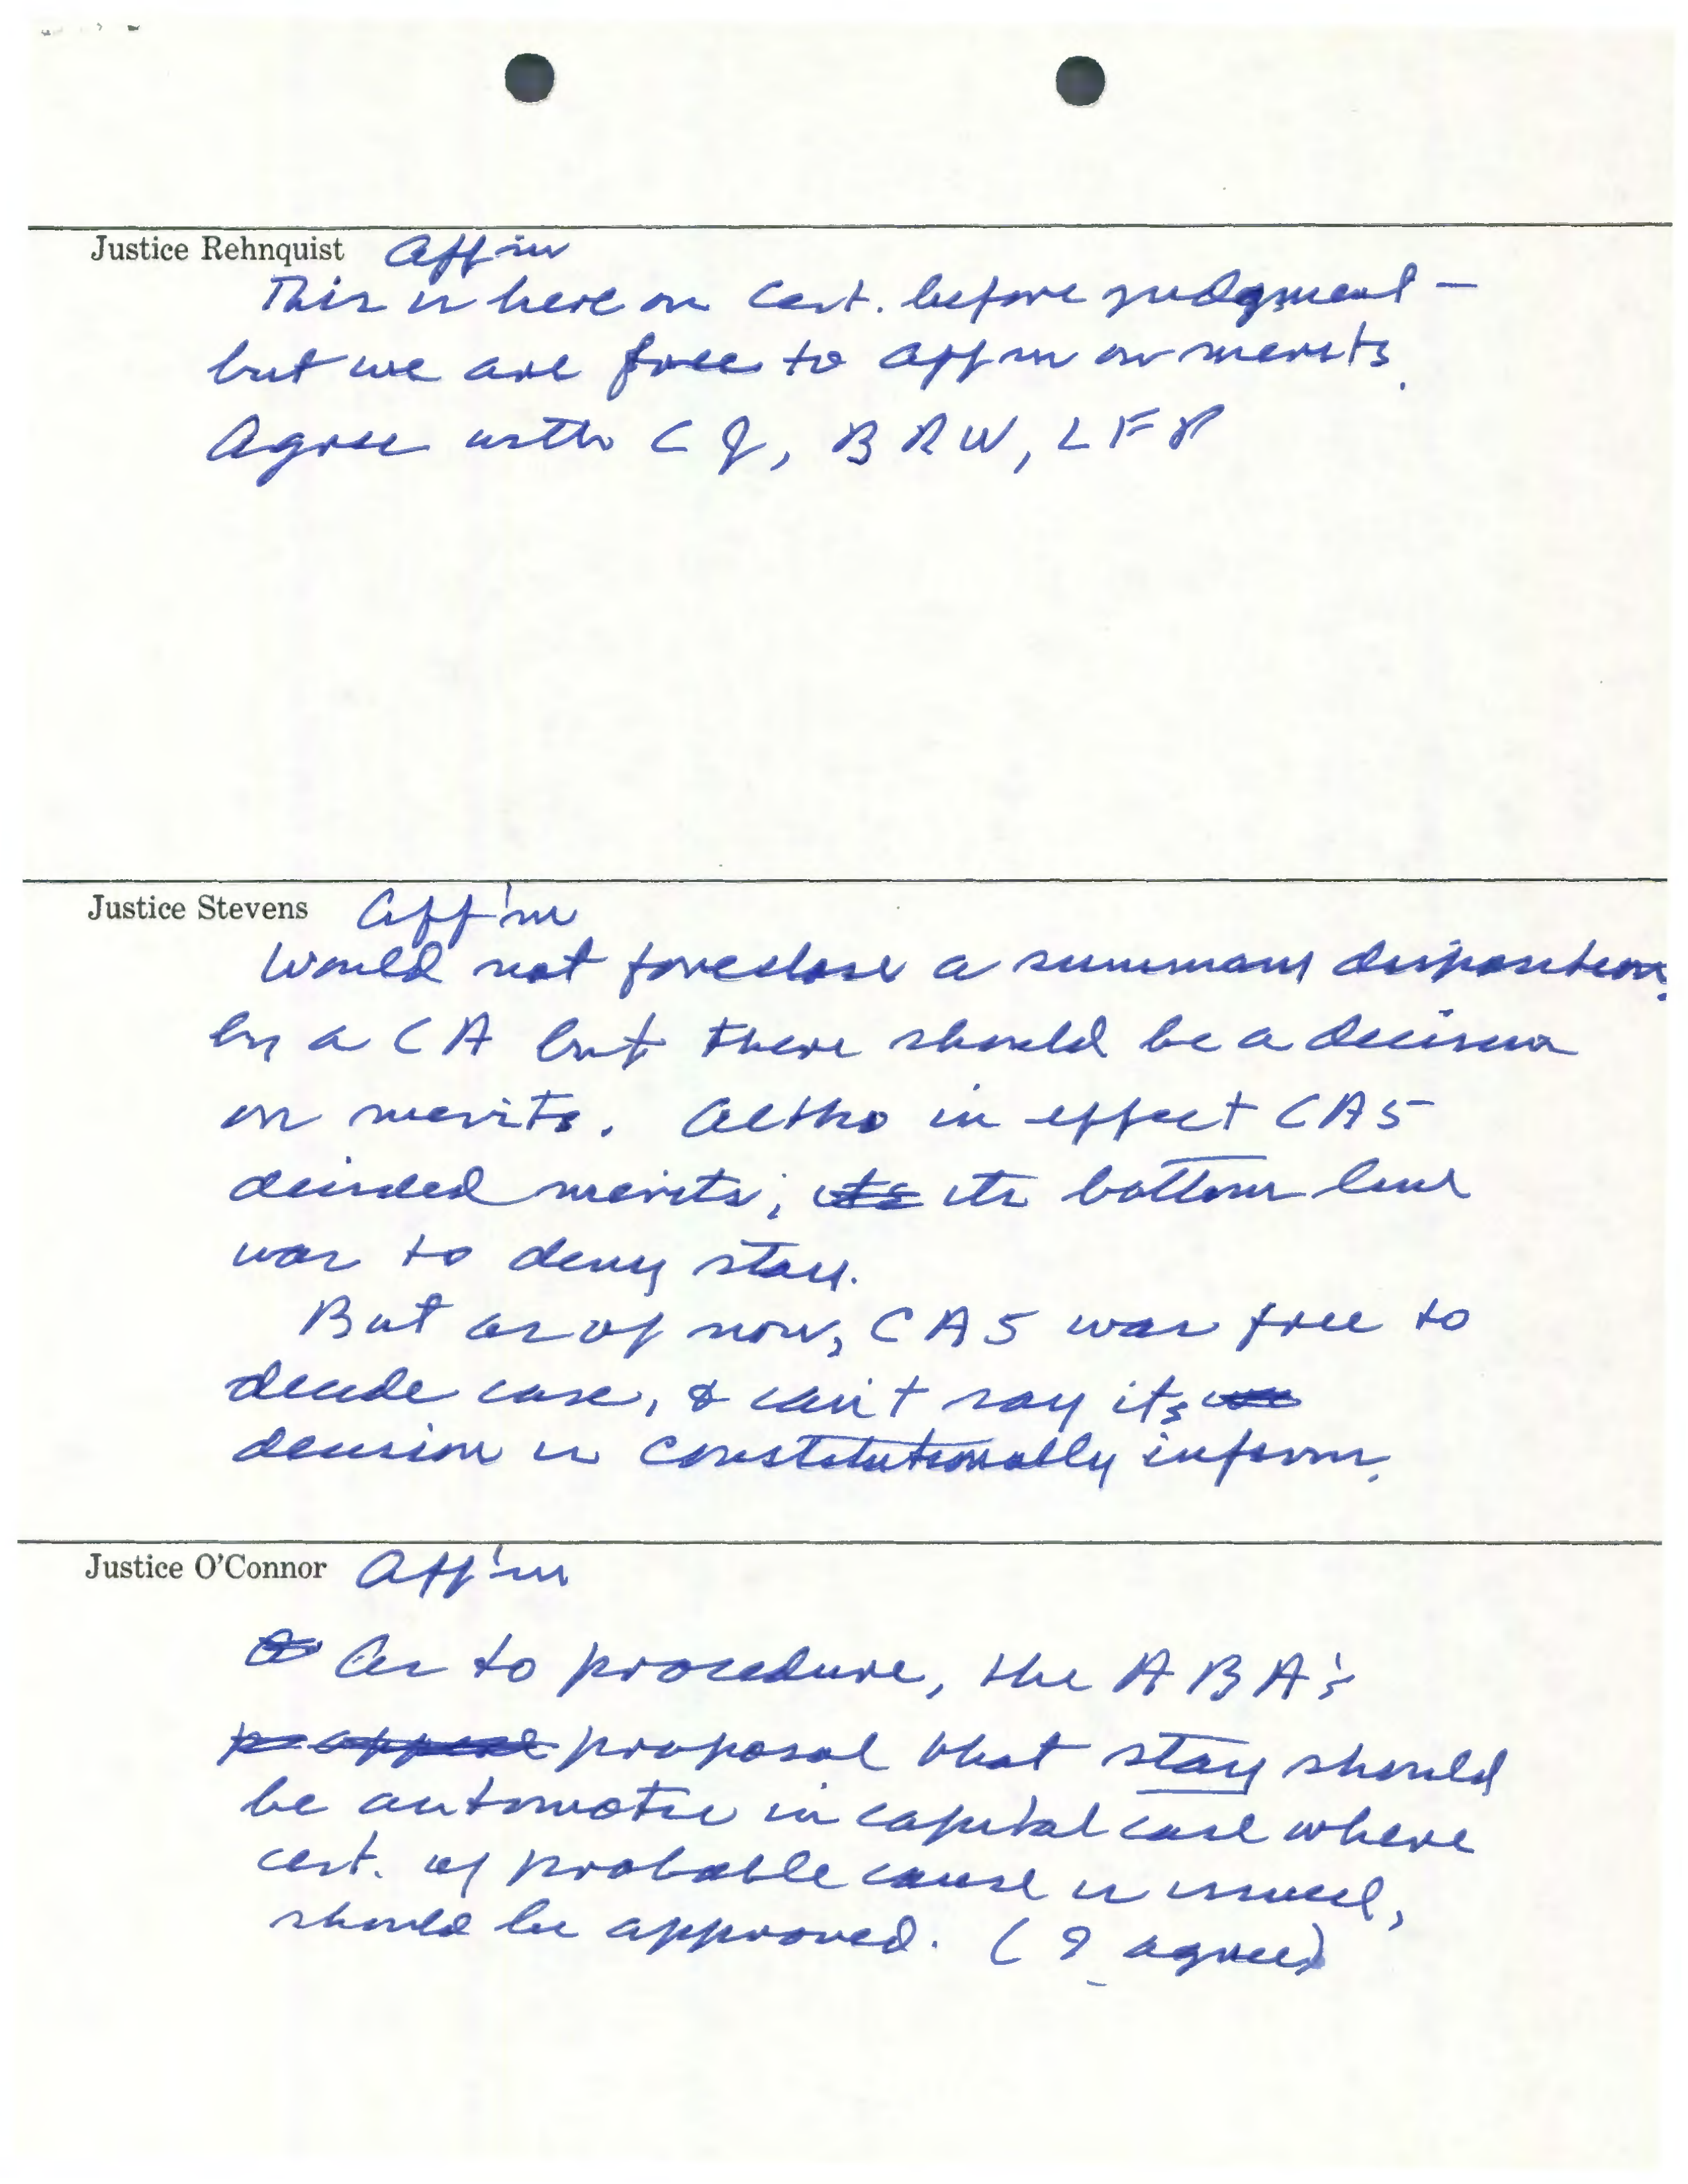 Justice Rehnquist Aff'm
This is here on Cert. before judgment —
but we are free to affm on merits.
Agree with CJ, BRW, LFP
Justice Stevens Aff'm
Would not foreclose a summary disposition
by a CA but there should be a decision
on merits. Altho in effect CA5
decided merits, its its bottom line
was to deny stay.
But as of now, CA5 was free to
decide case, & can't say its
decision is constitutionally infirm.
Justice O'Connor Aff'm
As to procedure, the ABA's
proposal that stay should
be automatic in capital case where
cert. of probable cause is issued,
should be approved. (I agree)